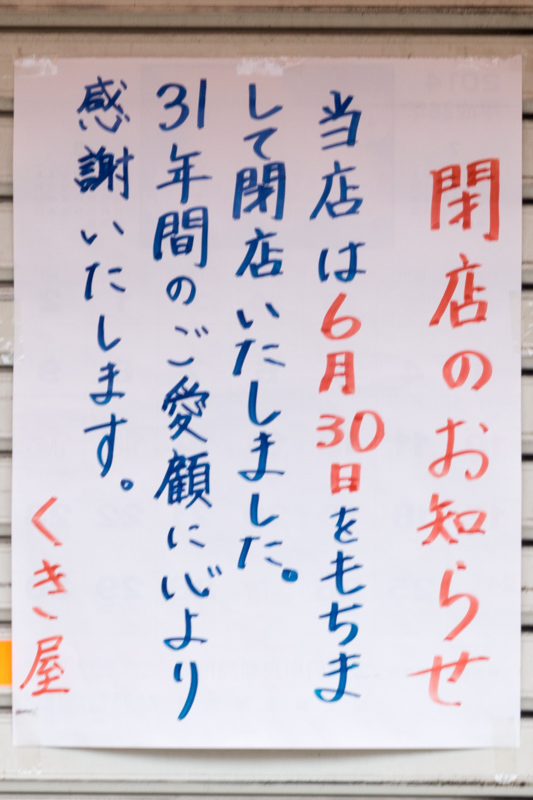 閉店のお知らせ
当店は6月30日をもちま
して閉店いたしました。
31年間のご愛顧に心より
感謝いたします。
くきや屋